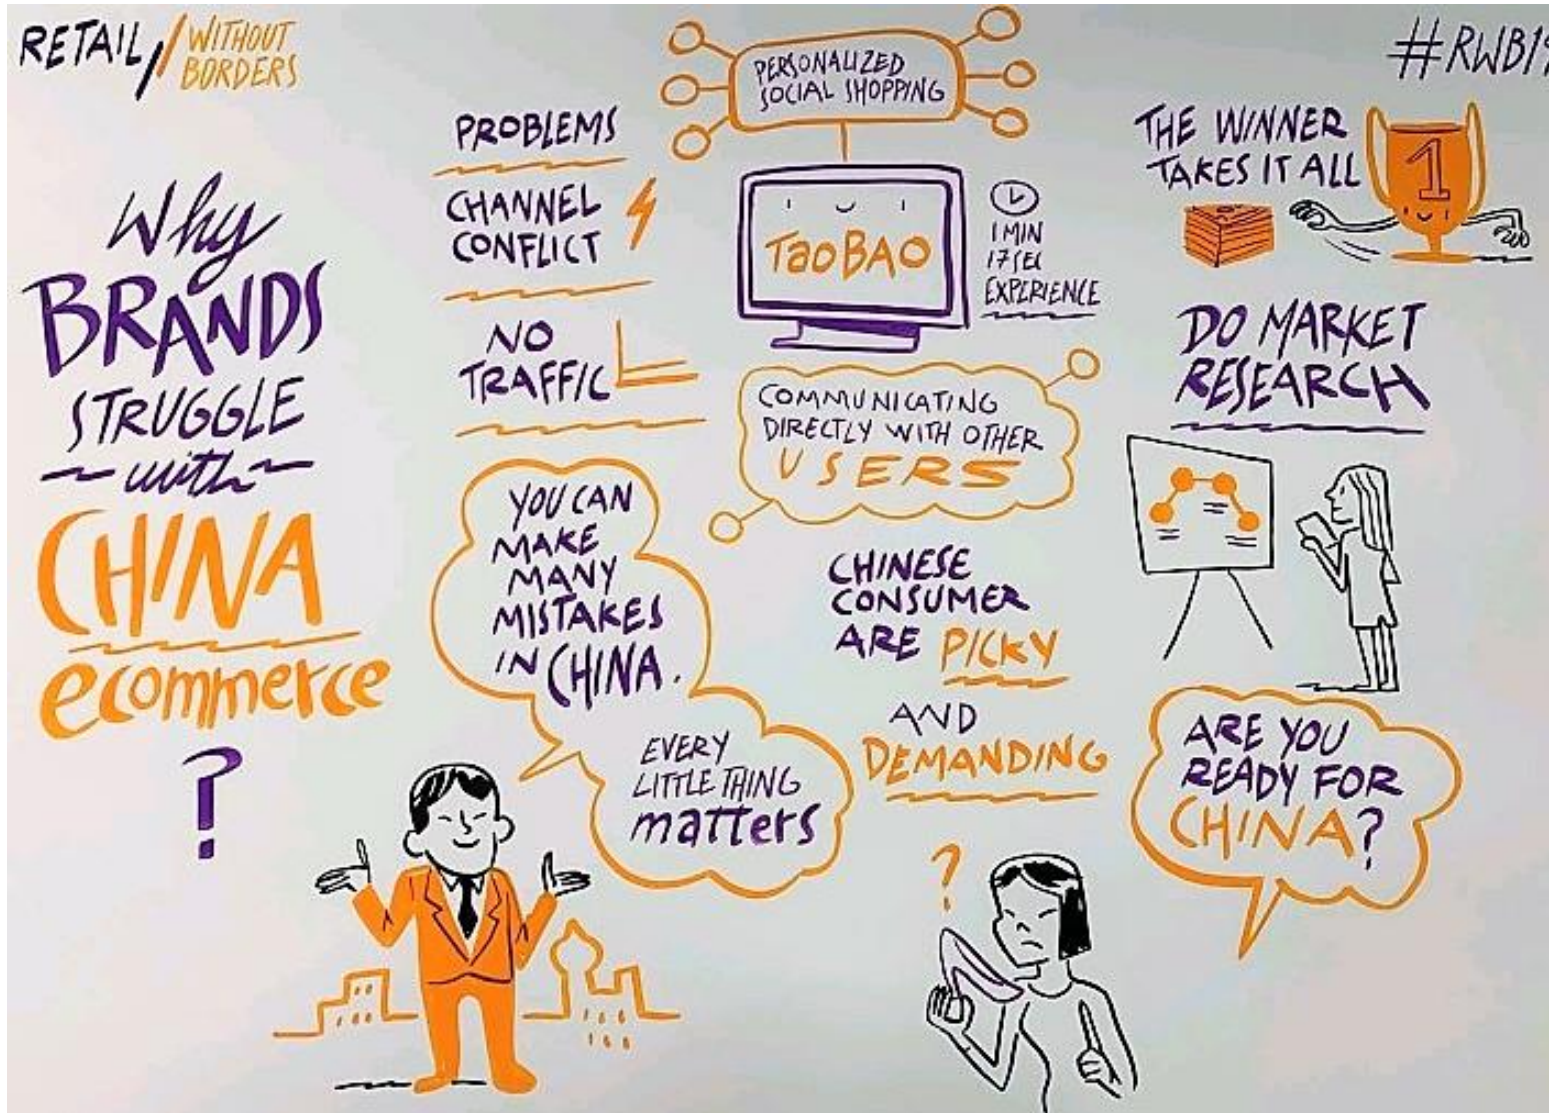 RETAIL
WITHOUT
BORDERS
#RWB19
Why
BRANDS
STRUGGLE
with
CHINA
ecommerce
?
PROBLEMS
CHANNEL
CONFLICT
NO
TRAFFIC
YOU CAN
MAKE
MANY
MISTAKES
IN CHINA.
EVERY
LITTLE THING
matters
PERSONALIZED
SOCIAL SHOPPING
TaoBAO
1 MIN
17 SEC
EXPERIENCE
COMMUNICATING
DIRECTLY WITH OTHER
USERS
CHINESE
CONSUMER
ARE PICKY
AND
DEMANDING
?
THE WINNER
TAKES IT ALL
1
DO MARKET
RESEARCH
ARE YOU
READY FOR
CHINA?